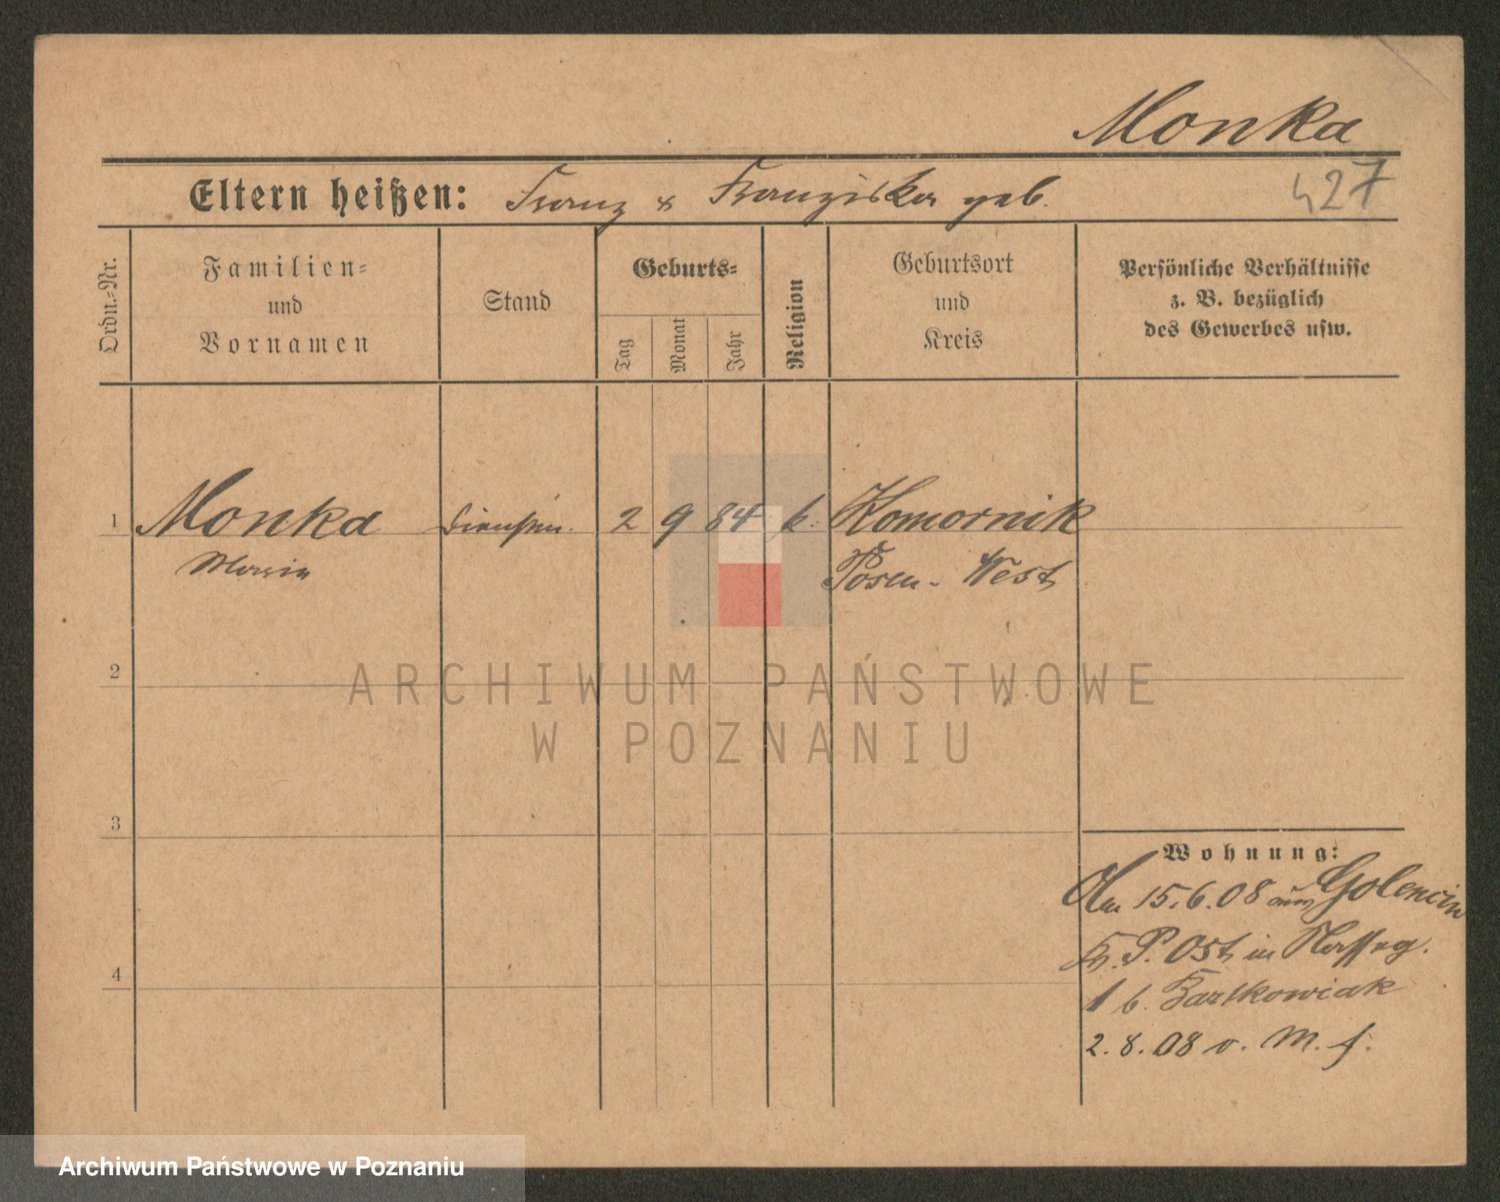 Monka
427
Eltern heißen: Franz & Franziska geb.
Ordn.-Nr.
Familien-
und
Vornamen
Stand
Geburts-
Tag
Monat
Jahr
Religion
Geburtsort
und
Kreis
Persönliche Verhältnisse
z. B. bezüglich
des Gewerbes usw.
1 Monka 2 9 84 k. Komornik
Maria Posen-West
2
ARCHIWUM PAŃSTWOWE
W POZNANIU
3
4
Wohnung:
Am 15.6.08 aus Golencin
Kr. P. Ost in
1 b. Bartkowiak
2.8.08 v. M. f.
Archiwum Państwowe w Poznaniu